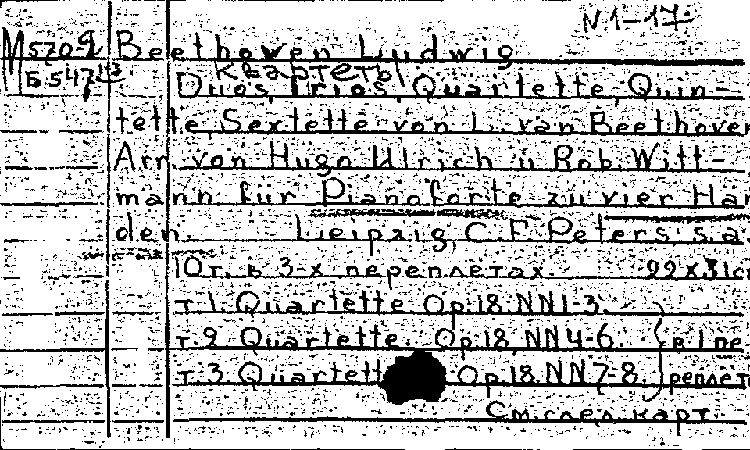 N 1-17.
M5709 Beethoven Ludwig
Б547 квартеты
Duos, Trios, Quartette, Quin-
tette, Sextette von L. van Beethoven
Arr. von Hugo Ulrich u. Rob. Witt-
mann für Pianoforte zu vier Hän
den. Leipzig, C.F. Peters s.a.
10 т. в 3-х переплетах.
т.1. Quartette Op.18. NN1-3.
т.2. Quartette. Op.18, NN4-6. в 1 пе
т.3. Quartett Op.18. NN7-8. реплет
См. след. карт.